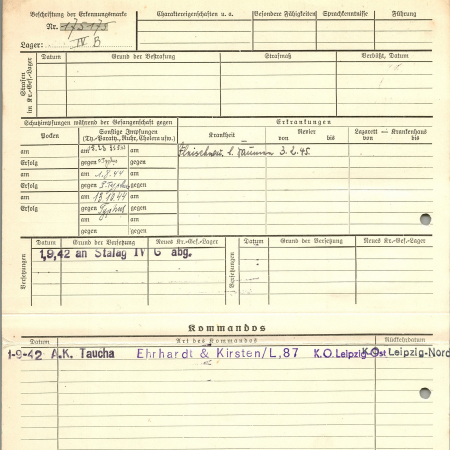 Beschriftung der Erkennungsmarke
Nr. 175175
Lager: IV B
Charaktereigenschaften u. a.
Besondere Fähigkeiten
Sprachkenntnisse
Führung
Strafen im Kr.-Gef.-Lager
Datum
Grund der Bestrafung
Strafmaß
Verbüßt, Datum
Schutzimpfungen während der Gefangenschaft gegen
Erkrankungen
Pocken
Sonstige Impfungen
(Ty.-Paraty., Ruhr, Cholera usw.)
Krankheit
Revier
von bis
Lazarett — Krankenhaus
von bis
am am am
Erfolg gegen gegen
am am 1.8.44 am
Erfolg gegen gegen
am am am
Erfolg gegen gegen
am am
gegen gegen
3.2.45.
Versetzungen
Datum
Grund der Versetzung
Neues Kr.-Gef.-Lager
Versetzungen
Datum
Grund der Versetzung
Neues Kr.-Gef.-Lager
1,9,42 an Stalag IV G abg.
Kommandos
Datum
Art des Kommandos
Rückkehrdatum
1-9-42 A.K. Taucha Ehrhardt & Kirsten/L,87 K.O. Leipzig-Ost Leipzig-Nord